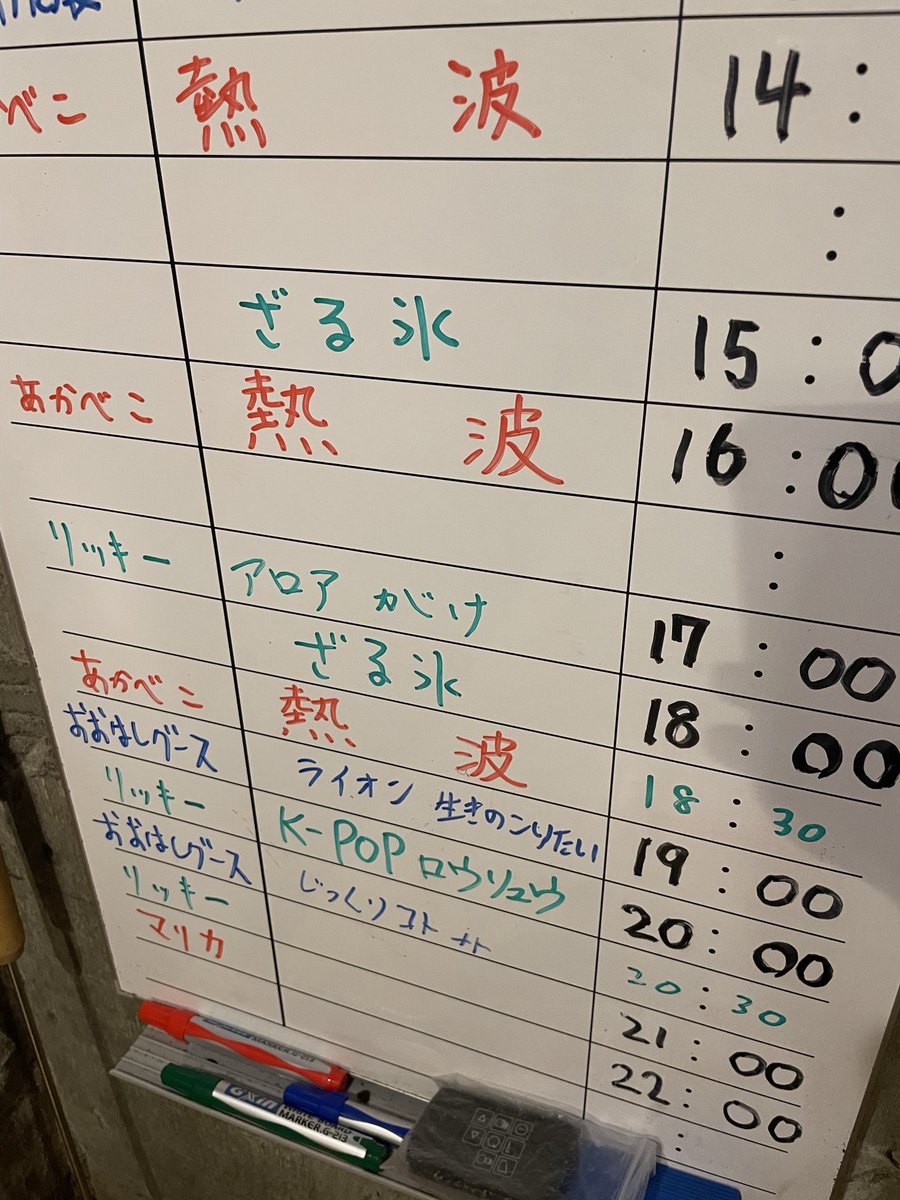 べこ 熱 波 14:
:
ざる氷 15:0
あかべこ 熱 波 16:00
:
リッキー アロア 17:00
ざる氷 18:00
あかべこ 熱 波 18:30
おおはしグース ライオン 生きのこりたい 19:00
リッキー K-POP ロウリュウ 20:00
おおはしグース じっくりコト 20:30
リッキー 21:00
マリカ 22:00
:
MARKER.G-213
WHITE BOARD
MARKER.G-213